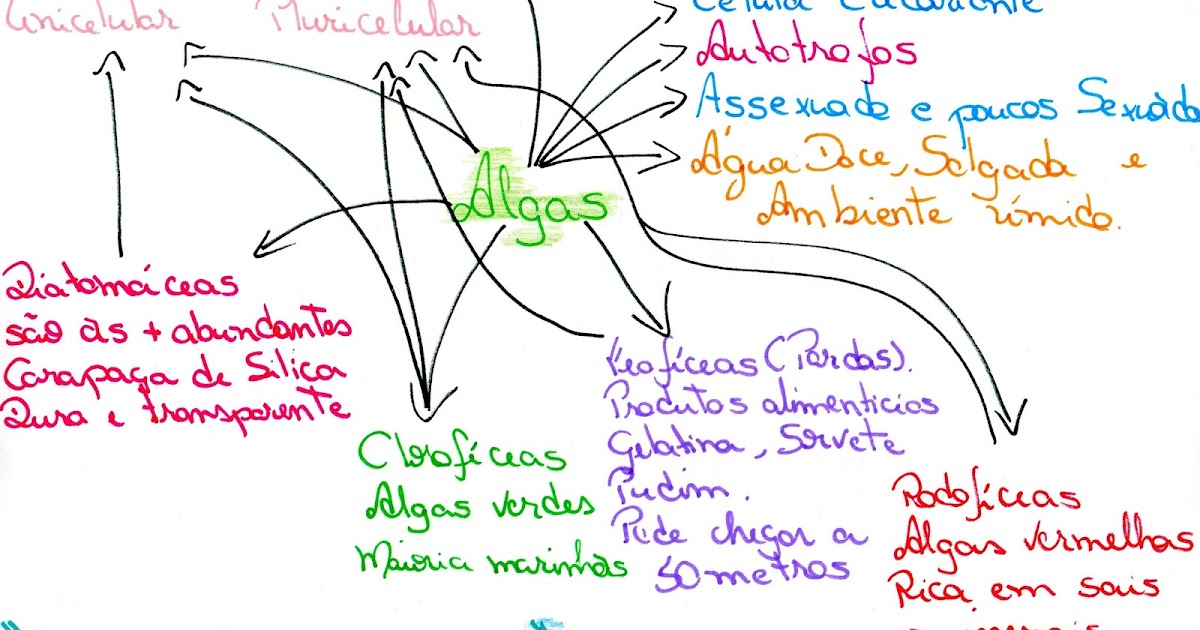 Unicelular
Pluricelular
Célula Eucarionte
Autotrofos
Assexuada e poucos Sexuada
Água Doce, Salgada e
Ambiente úmido.
Algas
Diatomáceas
são às + abundantes
Carapaça de Silica
Dura e transparente
Clorofíceas
Algas verdes
Maioria marinhas
Feofíceas (Pardas).
Produtos alimenticios
Gelatina, Sorvete
Pudim.
Pode chegar a
50 metros
Rodofíceas
Algas vermelhas
Rica em sais